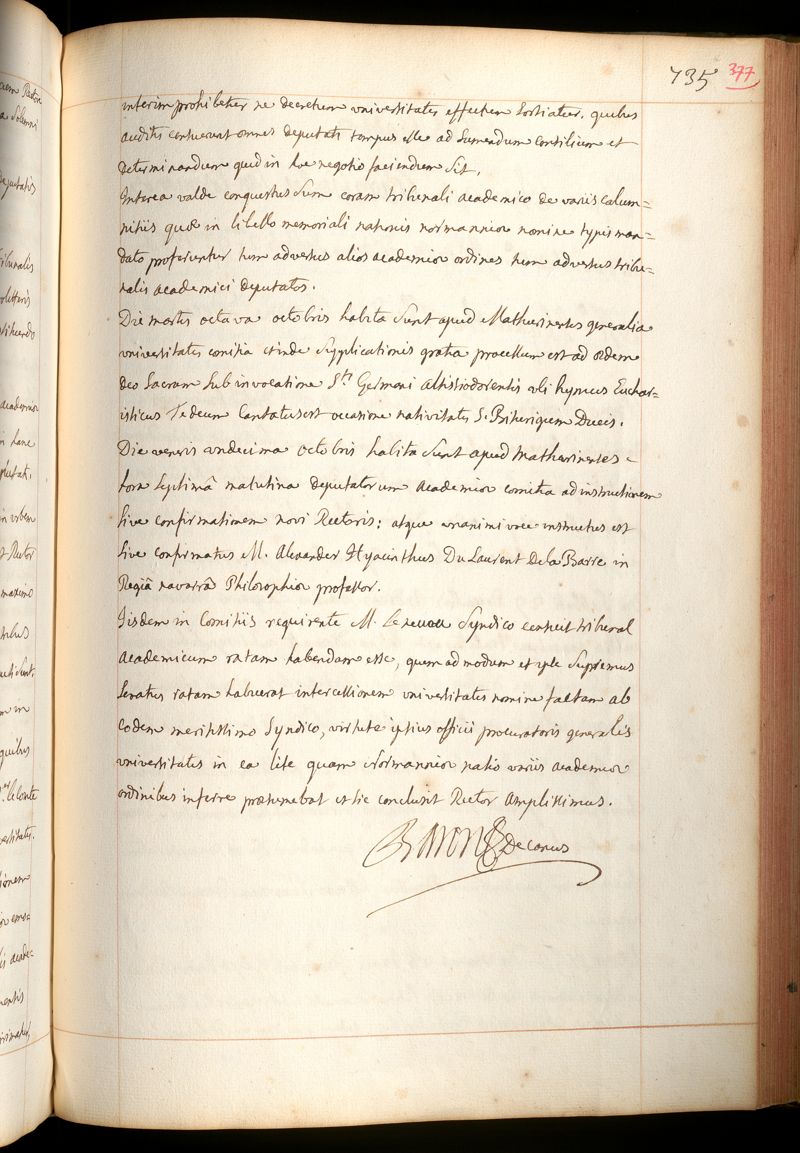 735 377
interim prohibetur ne decretum universitatis effectum sortiatur. quibus
auditis censuerunt omnes deputati tempus esse ad sumendum consilium et
determinandum quid in hoc negotio faciendum sit.
Interea valde conquestus sum coram tribunali academico de variis calum=
niis quæ in libello memoriali nationis normanniæ nomine typis man=
dato proferuntur tum adversus alios academiæ ordines tum adversus tribu=
nalis academici deputatos.
Die martis octava octobris habita sunt apud Mathurinenses generalia
universitatis comitia et inde supplicationis gratia processum est ad ædem
deo sacram sub invocatione Sti Germani altissiodorensis ubi hymnus Euchar=
isticus Te deum cantatus est occasione nativitatis S. Biturigum Ducis.
Die veneris undecima octobris habita sunt apud Mathurinenses
hora septimâ matutina deputatorum academiæ comitia ad instructionem
sive confirmationem novi Rectoris: atque unanimi voce instructus est
sive confirmatus M. Alexander Hyacinthus Du Laurent de la Barre in
Regiâ navarrâ Philosophiæ professor.
Iisdem in Comitiis requirente M. Syndico censuit tribunal
academicum ratam habendam esse, quemadmodum et ipse supremus
senatus ratam habuerat intercessionem universitatis nomine factam ab
eodem meritissimo Syndico, virtute ipsius officii procuratoris generalis
universitatis in ea lite quam Normanniæ natio variis academiæ
ordinibus inferre præsumebat et sic conclusit Rector amplissimus.
Baron Decanus
uem Rector
a solemni
deputatis
academiæ
in hanc
in urbem
Rector
maximo
sunt.
m in
quibus
le Comte
acade=